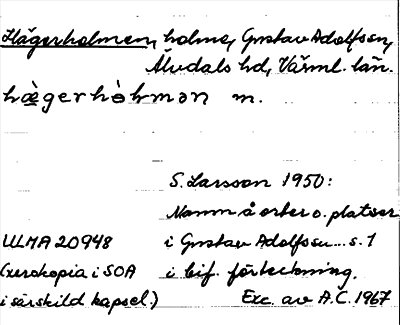 Hägerholmen, holme, Gustav Adolfsson,
Älvdals hd, Värml. län.
hägerhòlman m.
S. Larsson 1950:
Namn å orter o. platser
ULMA 20948 i Gustav Adolfssn... s. 1
(xerokopia i SOA i bif. förteckning.
i särskild kapsel.) Exc. av A.C. 1967